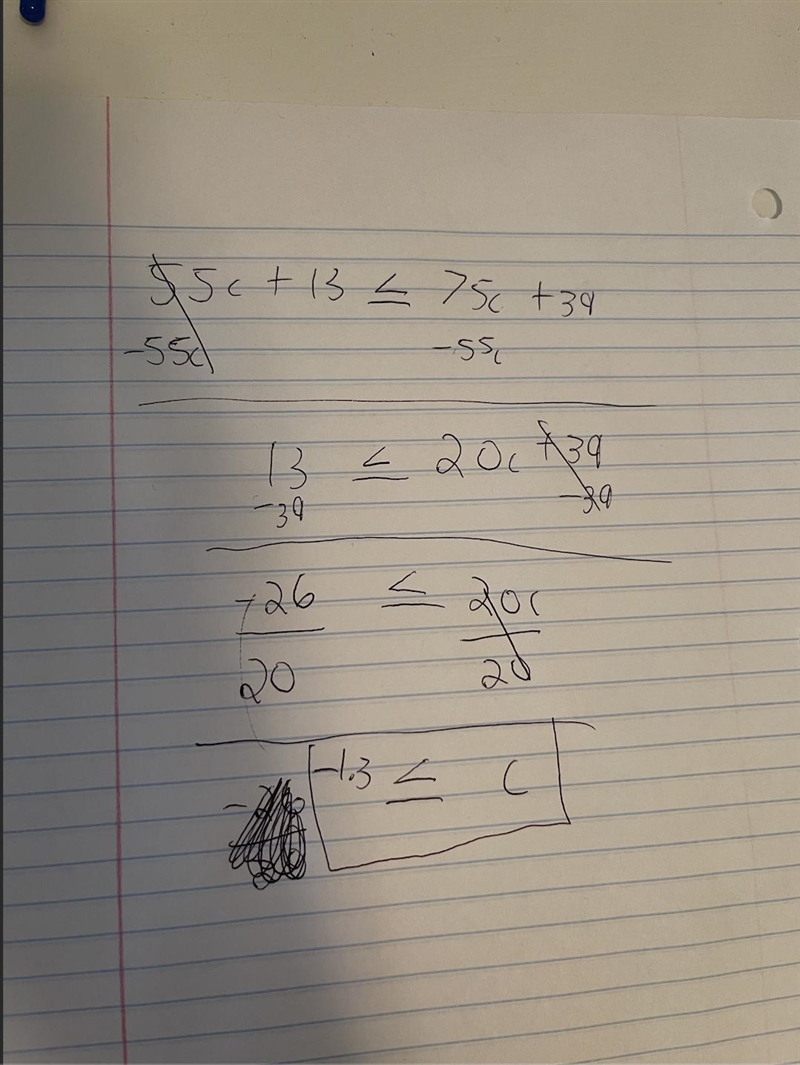 55c + 13 ≤ 75c + 39
-55c -55c
13 ≤ 20c + 39
-39 -39
-26 ≤ 20c
20 20
-1.3 ≤ c